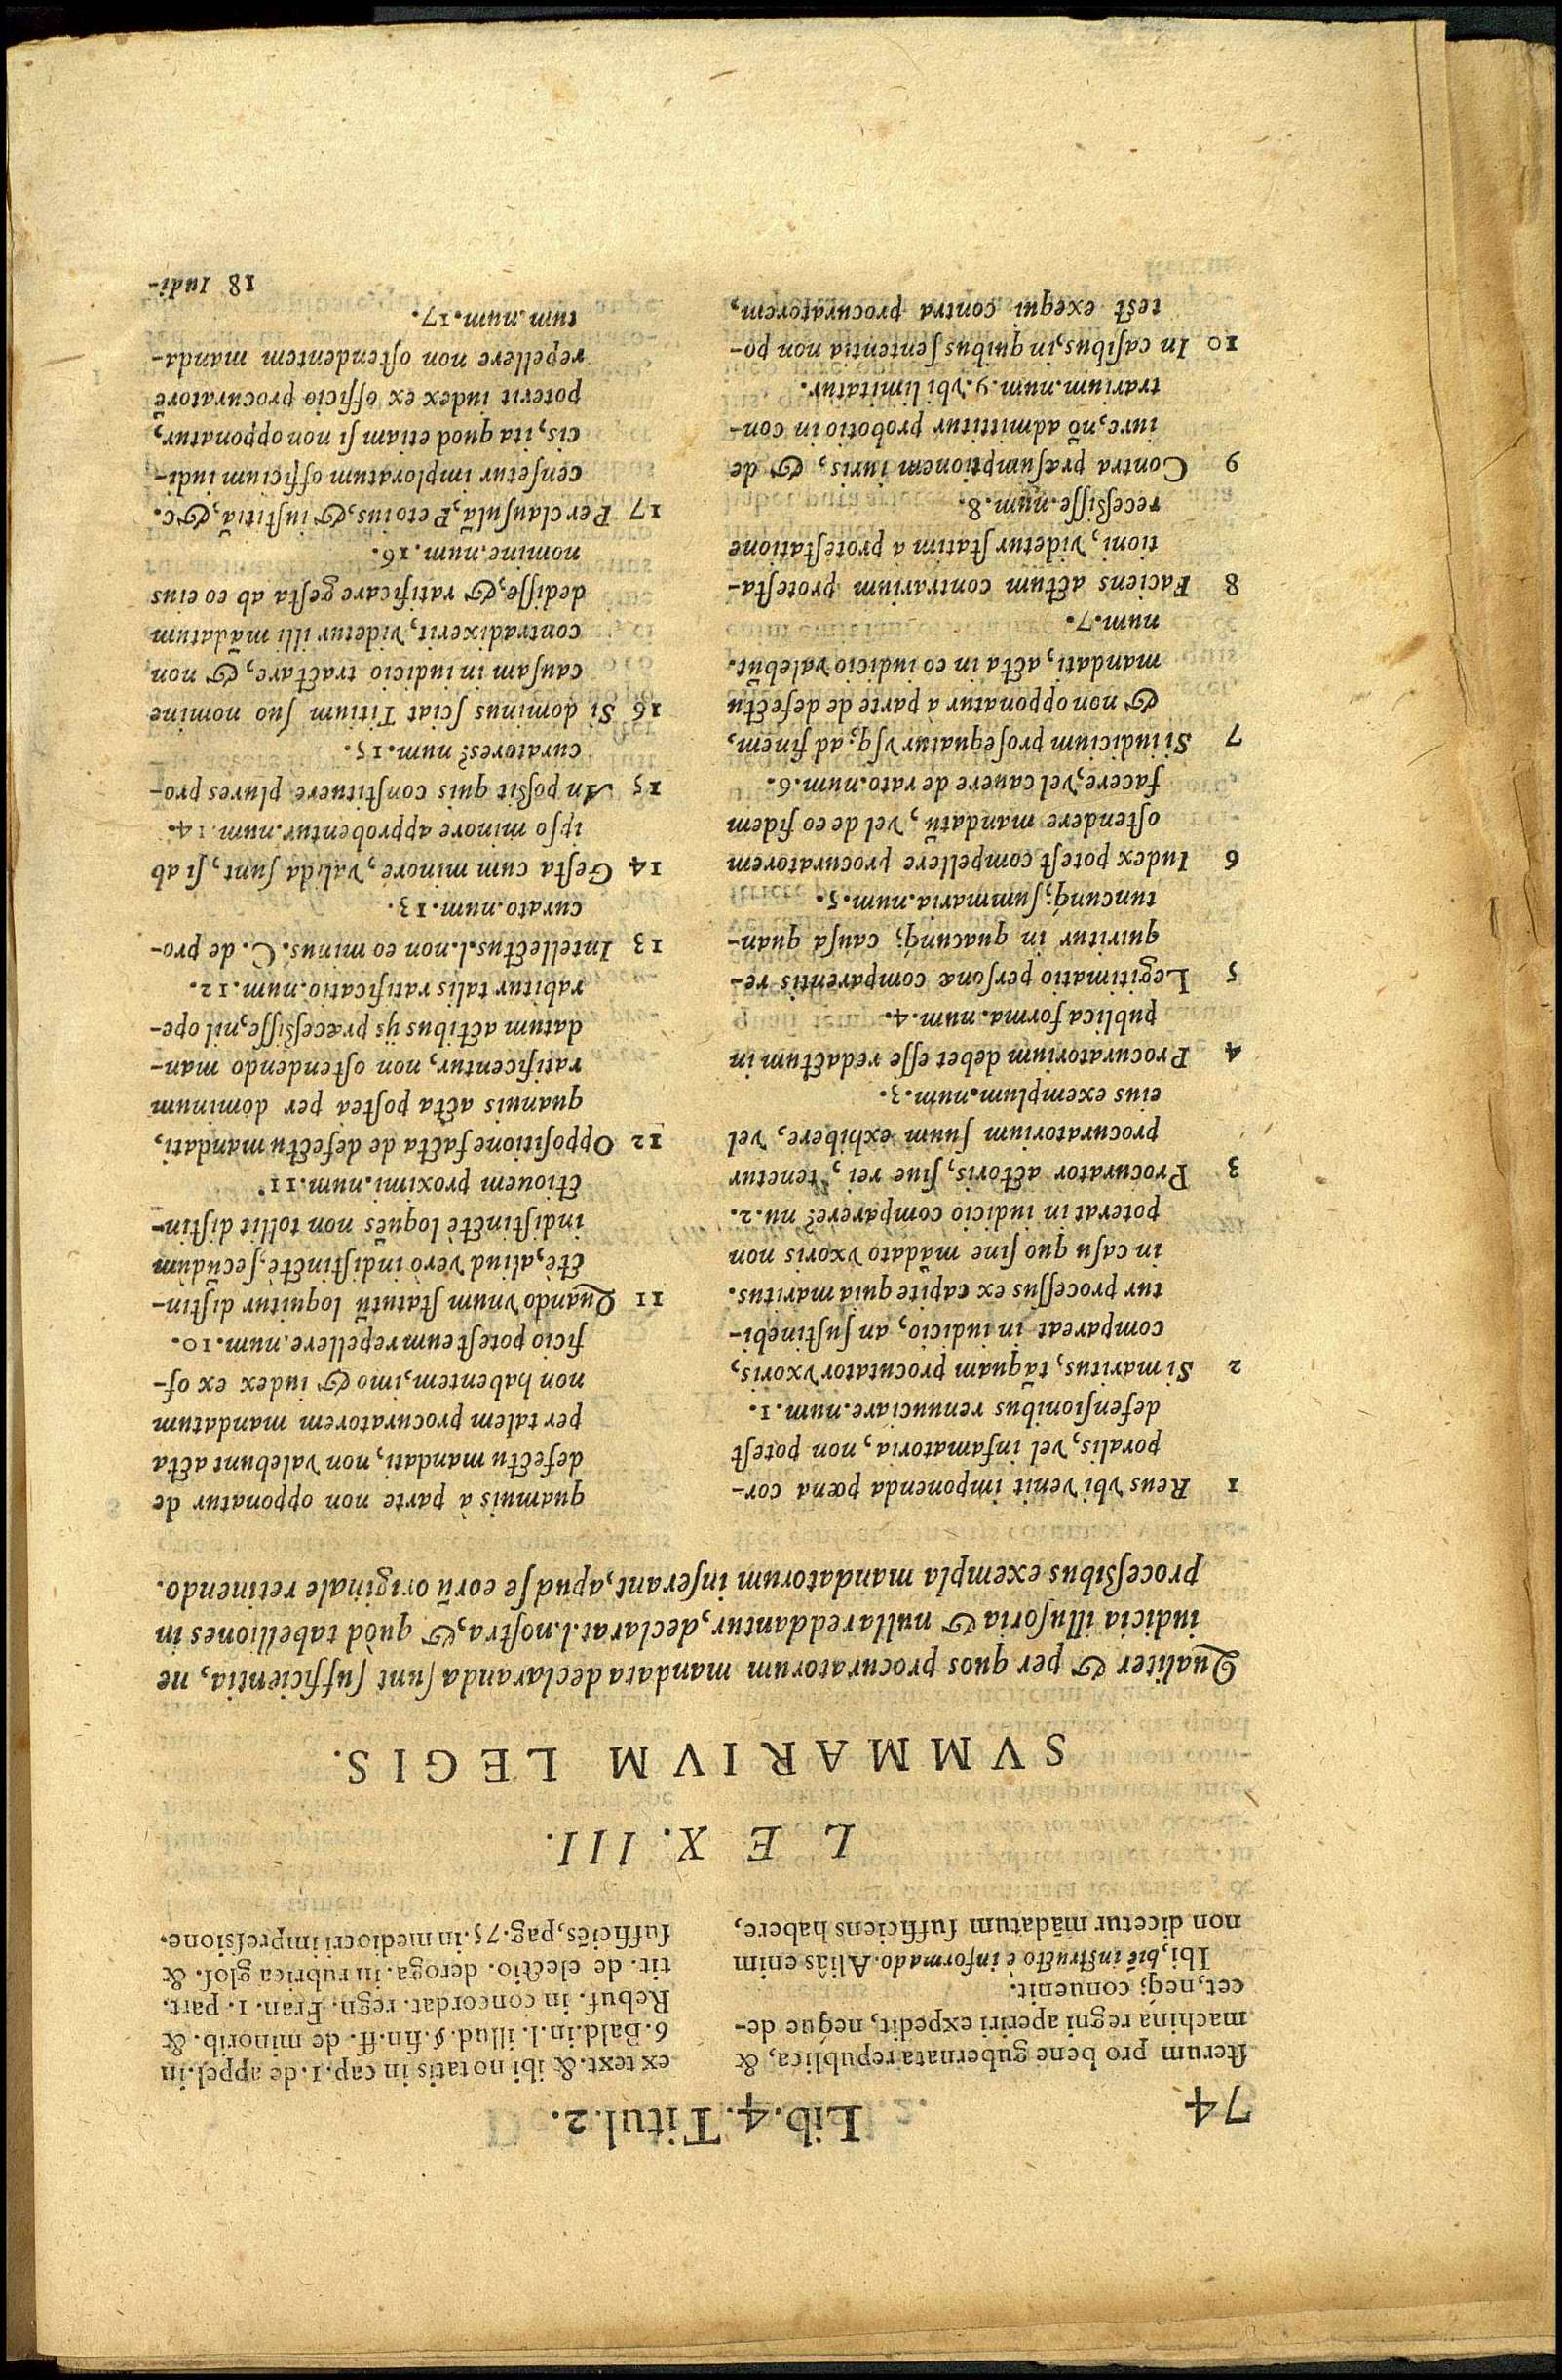 74
Lib.4.Titul.2.
ſterum pro bene gubernata republica, &
machina regni aperiri expedit, neque de-
cet, neq; conuenit.
Ibi, biē inſtructo e informado. Aliâs enim
non dicetur mādatum ſufficiens habere,
ex text. & ibi notatis in cap. 1. de appel. in
6. Bald. in. l. illud. §. fin. ff. de minorib. &
Rebuf. in concordat. regn. Fran. 1. part.
tit. de electio. deroga. in rubrica gloſ. &
ſufficiēs, pag. 75. in mediocri impreſsione.
L E X. III.
SVMMARIVM LEGIS.
Qualiter & per quos procuratorum mandata declaranda ſunt ſufficientia, ne
iudicia illuſoria & nulla reddantur, declarat. l. noſtra, & quòd tabelliones in
proceſsibus exempla mandatorum inſerant, apud ſe eorū originale retinendo.
1 Reus vbi venit imponenda pœna cor-
poralis, vel infamatoria, non poteſt
defenſionibus renunciare. num. 1.
2 Si maritus, tāquam procutator vxoris,
compareat in iudicio, an ſuſtinebi-
tur proceſſus ex capite quia maritus.
in caſu quo ſine mādato vxoris non
poterat in iudicio comparere? nu. 2.
3 Procurator actoris, ſiue rei, tenetur
procuratorium ſuum exhibere, vel
eius exemplum. num. 3.
4 Procuratorium debet eſſe redactum in
publica forma. num. 4.
5 Legitimatio perſonæ comparentis re-
quiritur in quacunq; cauſa quan-
tuncunq; ſummaria. num. 5.
6 Iudex poteſt compellere procuratorem
oſtendere mandatū, vel de eo fidem
facere, vel cauere de rato. num. 6.
7 Si iudicium proſequatur vſq; ad finem,
& non opponatur à parte de defectu
mandati, acta in eo iudicio valebūt.
num. 7.
8 Faciens actum contrarium proteſta-
tioni, videtur ſtatim a proteſtatione
receſsiſſe. num. 8.
9 Contra præſumptionem iuris, & de
iure, nō admittitur probotio in con-
trarium. num. 9. vbi limitatur.
10 In caſibus, in quibus ſententia non po-
teſt exequi contra procuratorem,
quamuis à parte non opponatur de
defectu mandati, non valebunt acta
per talem procuratorem mandatum
non habentem, imo & iudex ex of-
ficio poteſt eum repellere. num. 10.
11 Quando vnum ſtatutū loquitur diſtin-
ctè, aliud verò indiſtinctè, ſecūdùm
indiſtinctè loquēs non tollit diſtin-
ctionem proximi. num. 11.
12 Oppoſitione facta de defectu mandati,
quanuis acta poſtea per dominum
ratificentur, non oſtendendo man-
datum actibus ijs præceſsiſſe, nil ope-
rabitur talis ratificatio. num. 12.
13 Intellectus. l. non eo minus. C. de pro-
curato. num. 13.
14 Geſta cum minore, valida ſunt, ſi ab
ipſo minore approbentur. num. 14.
15 An poſsit quis conſtituere plures pro-
curatores? num. 15.
16 Si dominus ſciat Titium ſuo nomine
cauſam in iudicio tractare, & non
contradixerit, videtur illi mādatum
dediſſe, & ratificare geſta ab eo eius
nomine. num. 16.
17 Per clauſulā, Peto ius, & iuſtitiā, &c.
cenſetur imploratum officium iudi-
cis, ita quod etiam ſi non opponatur,
poterit iudex ex officio procuratorē
repellere non oſtendentem manda-
tum. num. 17.
18 Iudi-